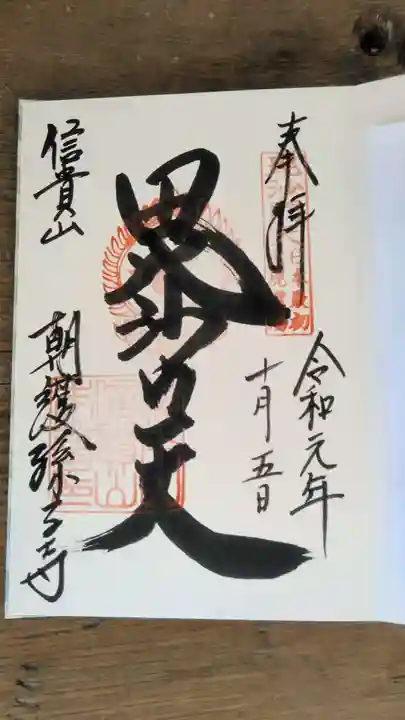 奉拝
令和元年
十月五日
毘沙門天
信貴山
朝護孫子寺